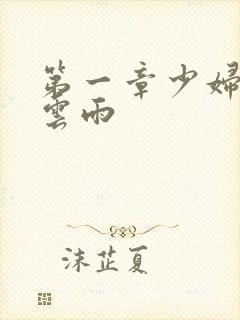 第一章少婦
雲雨
沫芷夏